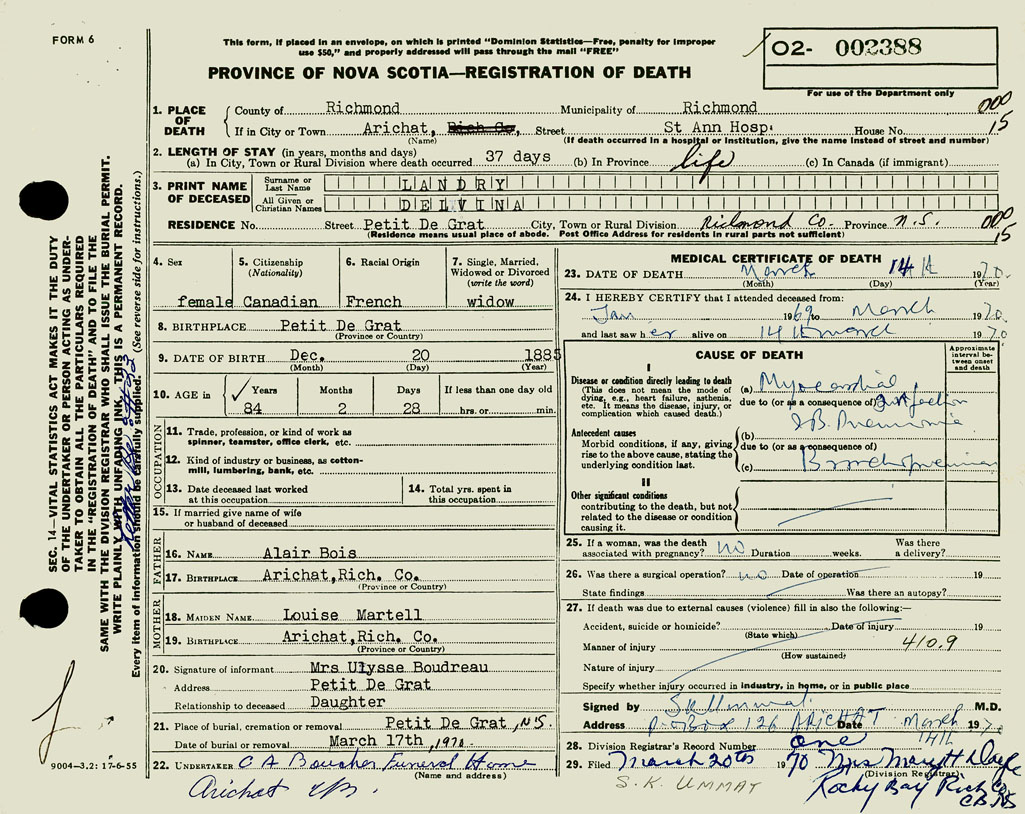 FORM 6
This form, if placed in an envelope, on which is printed "Dominion Statistics—Free, penalty for improper
use $50," and properly addressed will pass through the mail "FREE"
PROVINCE OF NOVA SCOTIA—REGISTRATION OF DEATH
02- 002388
For use of the Department only
1. PLACE OF DEATH
County of Richmond Municipality of Richmond
If in City or Town Arichat, Rich Co, Street St Ann Hosp. House No.
(Name) (If death occurred in a hospital or institution, give the name instead of street and number)
000
15
2. LENGTH OF STAY (in years, months and days)
(a) In City, Town or Rural Division where death occurred 37 days (b) In Province life (c) In Canada (if immigrant)
3. PRINT NAME OF DECEASED
Surname or Last Name LANDRY
All Given or Christian Names DELVINA
RESIDENCE No. Street Petit De Grat City, Town or Rural Division Richmond Co. Province N.S.
(Residence means usual place of abode. Post Office Address for residents in rural parts not sufficient)
000
15
4. Sex
female
5. Citizenship
(Nationality)
Canadian
6. Racial Origin
French
7. Single, Married,
Widowed or Divorced
(write the word)
widow
8. BIRTHPLACE Petit De Grat
(Province or Country)
9. DATE OF BIRTH Dec. 20 1885
(Month) (Day) (Year)
10. AGE in Years Months Days If less than one day old
84 2 28 hrs. or min.
OCCUPATION
11. Trade, profession, or kind of work as
spinner, teamster, office clerk, etc.
12. Kind of industry or business, as cotton-
mill, lumbering, bank, etc.
13. Date deceased last worked
at this occupation
14. Total yrs. spent in
this occupation
15. If married give name of wife
or husband of deceased
FATHER
16. NAME Alair Bois
17. BIRTHPLACE Arichat,Rich. Co.
(Province or Country)
MOTHER
18. MAIDEN NAME Louise Martell
19. BIRTHPLACE Arichat,Rich. Co.
(Province or Country)
20. Signature of informant Mrs Ulysse Boudreau
Address Petit De Grat
Relationship to deceased Daughter
21. Place of burial, cremation or removal Petit De Grat, N.S.
Date of burial or removal March 17th, 1970
22. UNDERTAKER C A Boucher Funeral Home
(Name and address)
Arichat
MEDICAL CERTIFICATE OF DEATH
23. DATE OF DEATH March 14th 1970.
(Month) (Day) (Year)
24. I HEREBY CERTIFY that I attended deceased from:
Jan 1969 to March 1970.
and last saw her alive on 14th march 1970
CAUSE OF DEATH
Approximate
interval be-
tween onset
and death
I
Disease or condition directly leading to death
(This does not mean the mode of
dying, e.g., heart failure, asthenia,
etc. It means the disease, injury, or
complication which caused death.)
(a) Myocardial
due to (or as a consequence of) Infarction
Antecedent causes
Morbid conditions, if any, giving
rise to the above cause, stating the
underlying condition last.
(b)
due to (or as a consequence of)
(c) Bronchopneumonia
II
Other significant conditions
contributing to the death, but not
related to the disease or condition
causing it.
25. If a woman, was the death
associated with pregnancy? no Duration weeks. Was there
a delivery?
26. Was there a surgical operation? no Date of operation 19
State findings Was there an autopsy?
27. If death was due to external causes (violence) fill in also the following:—
Accident, suicide or homicide? Date of injury 19
(State which)
Manner of injury 410.9
(How sustained?)
Nature of injury
Specify whether injury occurred in industry, in home, or in public place
Signed by M.D.
Address P.O Box 126 ARICHAT Date March 14th 1970
28. Division Registrar's Record Number one
29. Filed March 20th 1970 Mrs Mary H Doyle
(Division Registrar)
S.K. UMMAT
Rocky Bay Rich Co
C.B. NS
SEC. 14—VITAL STATISTICS ACT MAKES IT THE DUTY
OF THE UNDERTAKER OR PERSON ACTING AS UNDER-
TAKER TO OBTAIN ALL THE PARTICULARS REQUIRED
IN THE "REGISTRATION OF DEATH" AND TO FILE THE
SAME WITH THE DIVISION REGISTRAR WHO SHALL ISSUE THE BURIAL PERMIT.
WRITE PLAINLY WITH UNFADING INK. THIS IS A PERMANENT RECORD.
Every item of information should be carefully supplied. (See reverse side for instructions.)
9004-3.2: 17-6-55